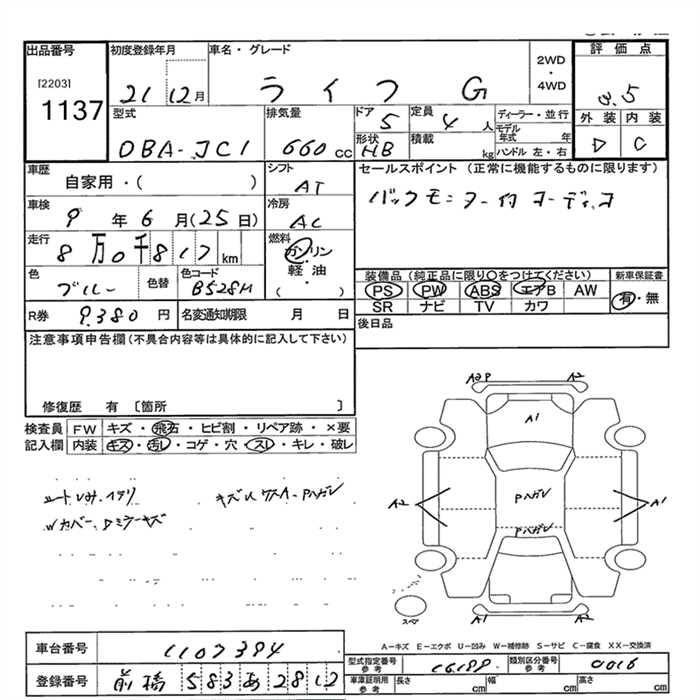 出品番号
[2203]
1137
初度登録年月
21 12月
車名・グレード
ライフ G
2WD
・
4WD
評価点
3.5
外装 内装
D C
型式
DBA-JC1
排気量
660cc
ドア
5
形状
HB
定員
4人
積載
kg
ディーラー・並行
モデル年式 年
ハンドル 左・右
車歴
自家用・( )
シフト
AT
車検
9年6月(25日)
冷房
AC
走行
8万0千817km
燃料
ガソリン
軽油
・
( )
色
ブルー
色替
色コード
B528M
R券
9,380円
名変通知期限 月 日
セールスポイント (正常に機能するものに限ります)
バックモニター付 オーディオ
装備品(純正品に限り○をつけてください)
PS PW ABS エアB AW
SR ナビ TV カワ
新車保証書
有・無
後日品
注意事項申告欄(不具合内容等は具体的に記入して下さい)
修復歴 有 〔箇所 〕
検査員 FW キズ・飛石・ヒビ割・リペア跡・×要
記入欄 内装 キズ・汚レ・コゲ・穴・スレ・キレ・破レ
A2P A2
A1
A2 Pハガレ A1
Pハガレ
A1 A2
スペア
A-キズ E-エクボ U-凹み W-補修跡 S-サビ C-腐食 XX-交換済
車台番号 1107394
登録番号 前橋 583 あ 2812
型式指定番号 参考 16188
類別区分番号 参考 0016
車庫証明用 参考 長さ cm 幅 cm 高さ cm